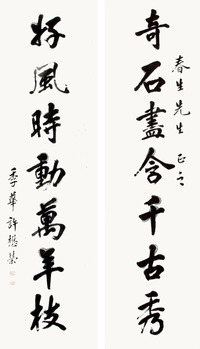 奇石盡含千古秀
春生先生 正之
好風時動萬年枝
季華許懋